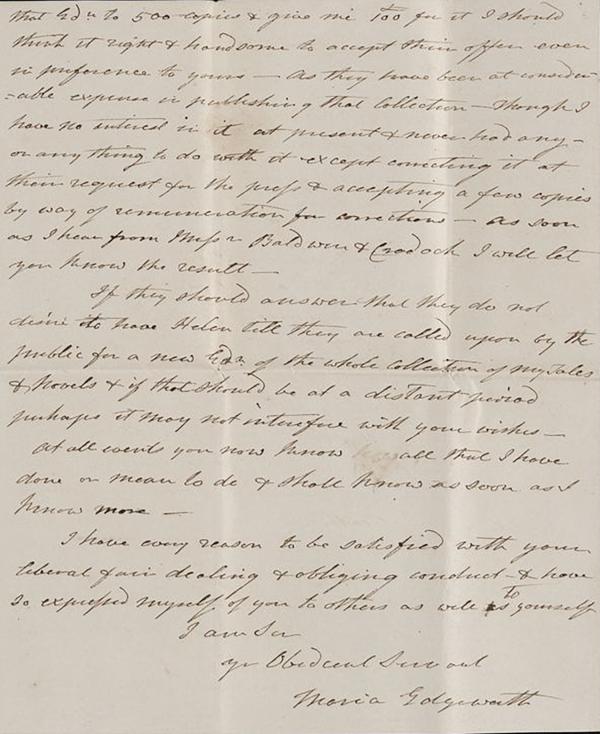 that Edn. to 500 copies & give me 100 for it I should
think it right & handsome to accept their offer even
in preference to yours — as they have been at consider
=able expense in publishing that collection — though I
have no interest in it at present & never had any —
or any thing to do with it except correcting it at
their request for the press & accepting a few copies
by way of remuneration for correction — as soon
as I hear from Messrs Baldwin & Cradock I will let
you know the result —
If they should answer that they do not
desire to have Helen till they are called upon by the
public for a new Edn. of the whole collection of my Tales
& Novels & if that should be at a distant period
perhaps it may not interfere with your wishes —
At all events you now know all that I have
done or mean to do & shall know as soon as I
know more —
I have every reason to be satisfied with your
liberal & fair dealing & obliging conduct — & have
so expressed myself of you to others as well as to yourself
I am Sir
yr Obedient Servant
Maria Edgeworth